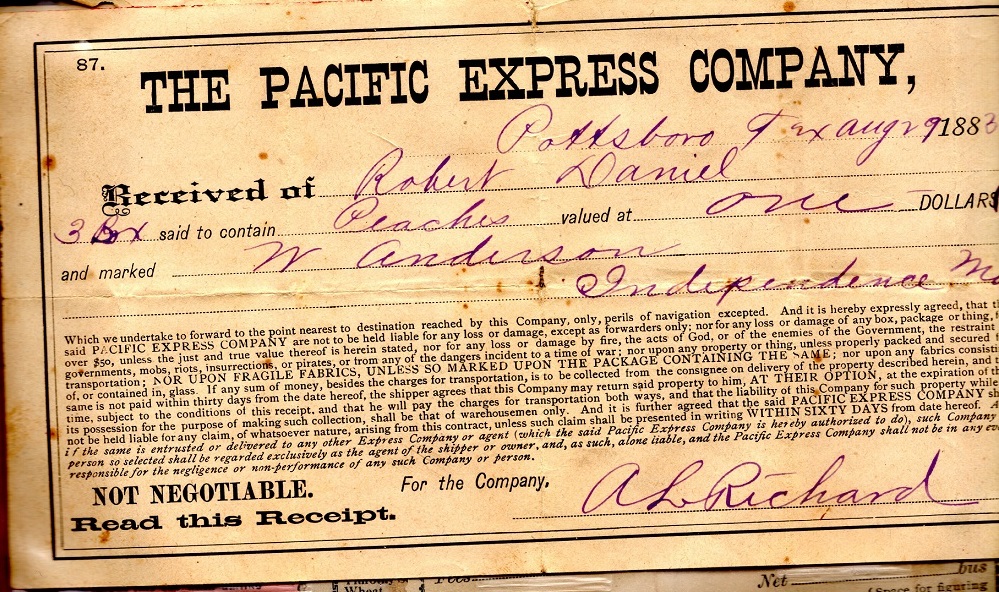 87.
THE PACIFIC EXPRESS COMPANY,
Pottsboro Tex Aug 29 1883
Received of Robert Daniel
3 Bx said to contain Peaches valued at one DOLLARS
and marked W Anderson
Independence Mo
Which we undertake to forward to the point nearest to destination reached by this Company, only, perils of navigation excepted. And it is hereby expressly agreed, that t
said PACIFIC EXPRESS COMPANY are not to be held liable for any loss or damage, except as forwarders only; nor for any loss or damage of any box, package or thing, f
over $50, unless the just and true value thereof is herein stated, nor for any loss or damage by fire, the acts of God, or of the enemies of the Government, the restraint
governments, mobs, riots, insurrections, or pirates, or from any of the dangers incident to a time of war; nor upon any property or thing, unless properly packed and secured
transportation; NOR UPON FRAGILE FABRICS, UNLESS SO MARKED UPON THE PACKAGE CONTAINING THE SAME; nor upon any fabrics consist
of, or contained in, glass. If any sum of money, besides the charges for transportation, is to be collected from the consignee on delivery of the property described herein, and t
same is not paid within thirty days from the date hereof, the shipper agrees that this Company may return said property to him, AT THEIR OPTION, at the expiration of th
time, subject to the conditions of this receipt, and that he will pay the charges for transportation both ways, and that the liability of this Company for such property while
its possession for the purpose of making such collection, shall be that of warehousemen only. And it is further agreed that the said PACIFIC EXPRESS COMPANY sh
not be held liable for any claim, of whatsoever nature, arising from this contract, unless such claim shall be presented in writing WITHIN SIXTY DAYS from date hereof. A
if the same is entrusted or delivered to any other Express Company or agent (which the said Pacific Express Company is hereby authorized to do), such Company
person so selected shall be regarded exclusively as the agent of the shipper or owner, and, as such, alone liable, and the Pacific Express Company shall not be in any eve
responsible for the negligence or non-performance of any such Company or person.
NOT NEGOTIABLE. For the Company,
A L Richard
Read this Receipt.
Wheat
Fees
Net bus
(Space for figuring